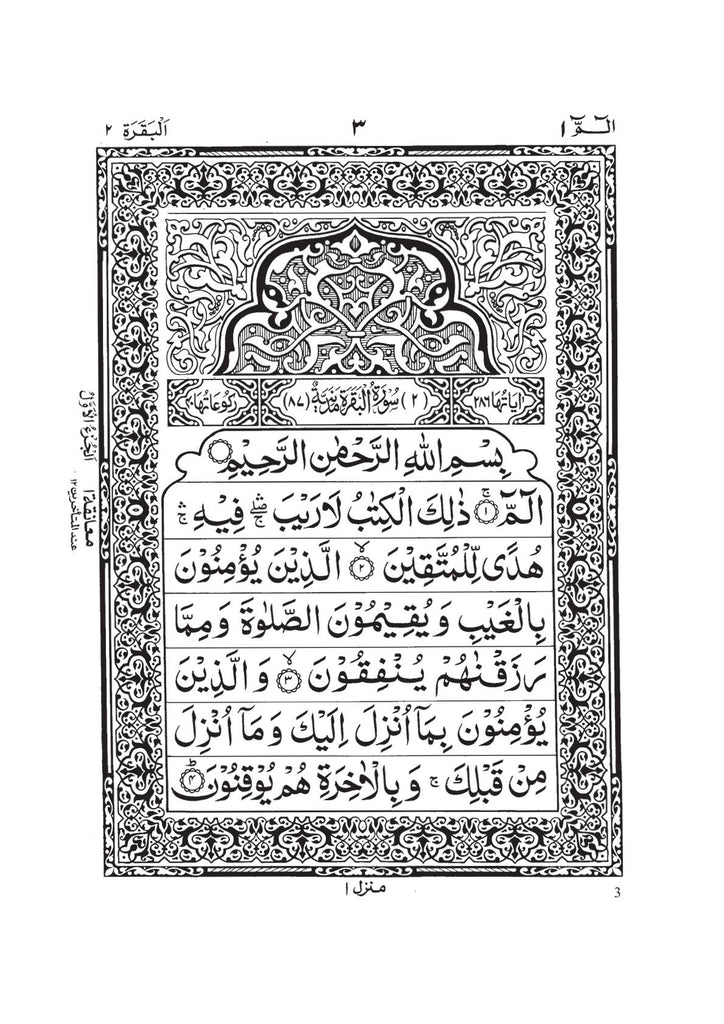 الٓـمّٓ ١
٣
اَلْبَقَرَة ٢
اٰيَاتُهَا ٢٨٦
(٢) سُوْرَةُ الْبَقَرَةِ مَدَنِيَّةٌ (٨٧)
رُكُوْعَاتُهَا ٤٠
بِسْمِ اللّٰهِ الرَّحْمٰنِ الرَّحِيْمِ
الٓمّٓ ۚ ﴿١﴾ ذٰلِكَ الْكِتٰبُ لَا رَيْبَ ۛۖ فِيْهِ ۛۚ
هُدًى لِّلْمُتَّقِيْنَ ۙ ﴿٢﴾ الَّذِيْنَ يُؤْمِنُوْنَ
بِالْغَيْبِ وَيُقِيْمُوْنَ الصَّلٰوةَ وَمِمَّا
رَزَقْنٰهُمْ يُنْفِقُوْنَ ۙ ﴿٣﴾ وَالَّذِيْنَ
يُؤْمِنُوْنَ بِمَآ اُنْزِلَ اِلَيْكَ وَمَآ اُنْزِلَ
مِنْ قَبْلِكَ ۚ وَبِالْاٰخِرَةِ هُمْ يُوْقِنُوْنَ ؕ ﴿٤﴾
اَلْجُزْءُ الْاَوَّلُ
معانقة ١
عند المتأخرين ١٢
منزل ١
3